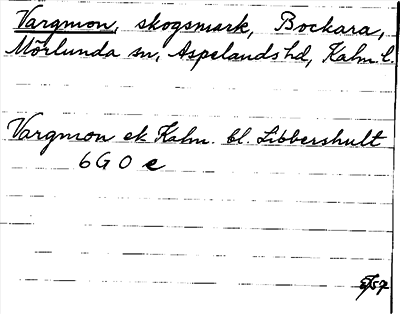 Vargmon, skogsmark, Bockara,
Mörlunda sn, Aspelands hd, Kalm. l.
Vargmon ek Kalm. bl. Libbershult
6 G 0 e